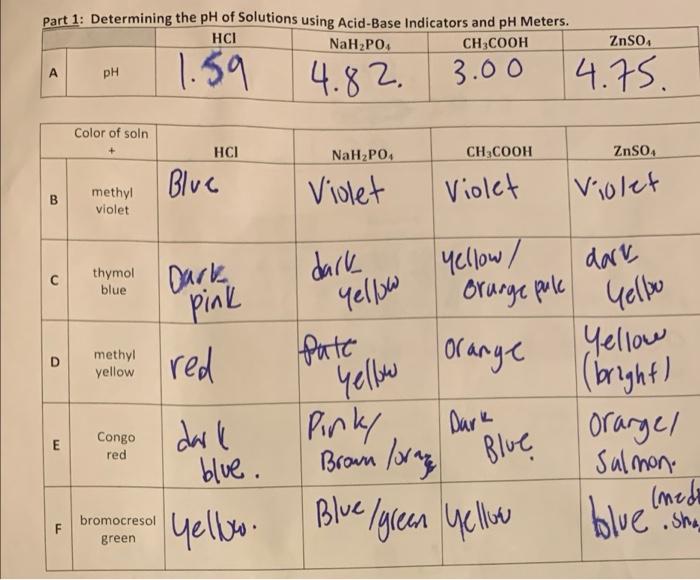 Part 1: Determining the pH of Solutions using Acid-Base Indicators and pH Meters.
HCl NaH₂PO₄ CH₃COOH ZnSO₄
A pH 1.59 4.82. 3.00 4.75.
Color of soln
+ HCl NaH₂PO₄ CH₃COOH ZnSO₄
B methyl violet Blue Violet Violet Violet
C thymol blue Dark pink dark yellow yellow/ orange pale dark yellow
D methyl yellow red yellow orange Yellow (bright)
E Congo red dark blue. Pink/ Brown Dark Blue. orange/ Salmon.
F bromocresol green yellow. Blue/green yellow blue